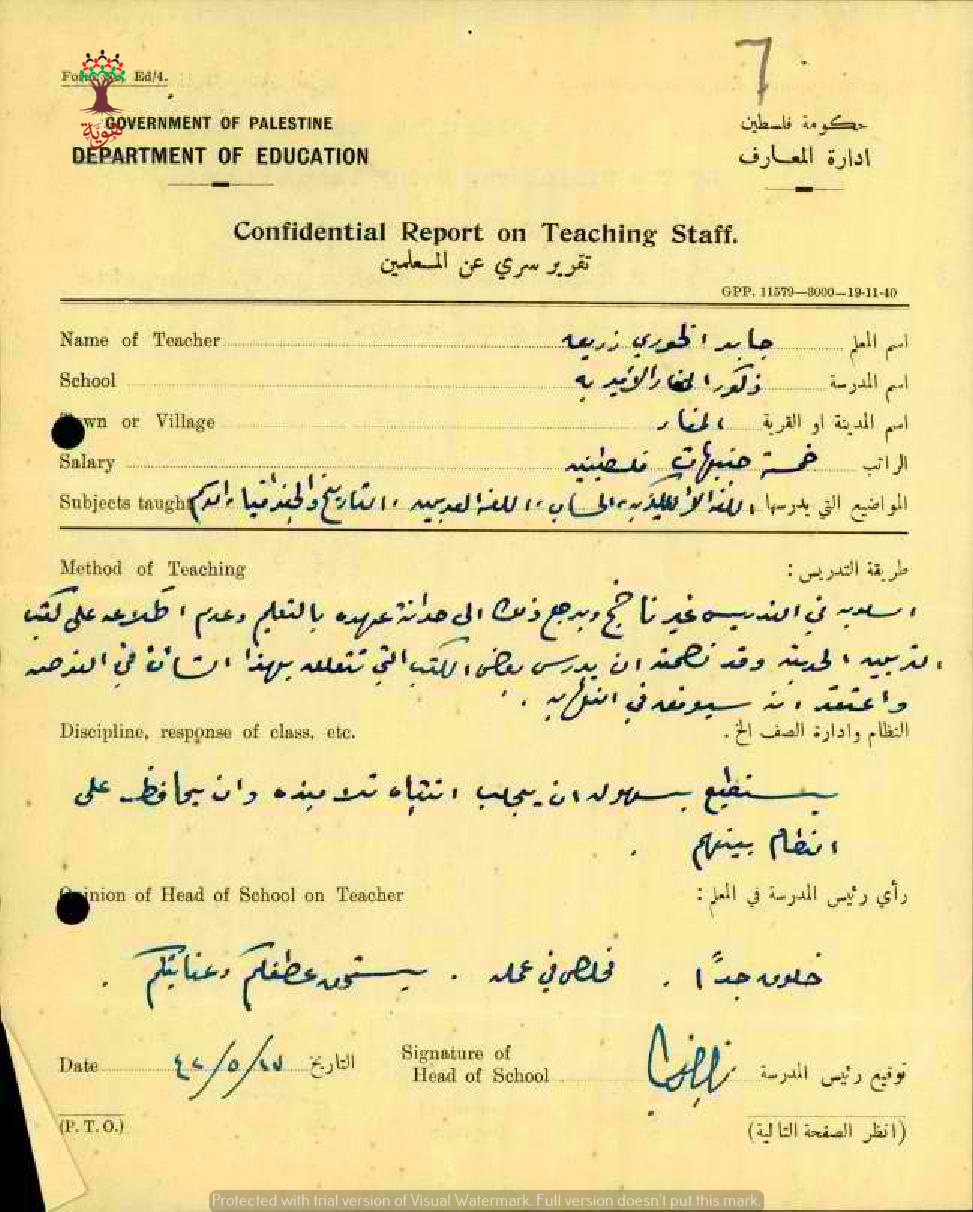 7
Form No. Ed/4.
GOVERNMENT OF PALESTINE
حكومة فلسطين
DEPARTMENT OF EDUCATION
ادارة المعارف
Confidential Report on Teaching Staff.
تقرير سري عن المعلمين
GPP. 11579—8000—19-11-40
Name of Teacher الخوري اسم المعلم
School ذكور المغار الاميرية اسم المدرسة
Town or Village المغار اسم المدينة او القرية
Salary خمسة جنيهات فلسطينيه الراتب
Subjects taught اللغة الانكليزيه، الحساب، اللغة العربيه، التاريخ والجغرافيا، الرسم المواضيع التي يدرسها
Method of Teaching طريقة التدريس :
اسلوبه في التدريس غير ناضج ويرجع ذلك الى حداثة عهده بالتعليم وعدم اطلاعه على كتب
التربيه الحديثه وقد نصحته ان يدرس بعض الكتب التي تتعلق بهذا الشأن في الفرصه
واعتقد انه سيوفق في النهايه .
Discipline, response of class, etc. النظام وادارة الصف الخ .
يستطيع بسهولة ان يجلب انتباه تلاميذه وان يحافظ على
النظام بينهم .
Opinion of Head of School on Teacher رأي رئيس المدرسة في المعلم :
خلوق جدًا . مخلص في عمله . يستحق عطفكم وعنايتكم .
Date ٤٢/٥/١٧ التاريخ Signature of Head of School توقيع رئيس المدرسة
(P. T. O.) (انظر الصفحة التالية)
Protected with trial version of Visual Watermark. Full version doesn't put this mark.